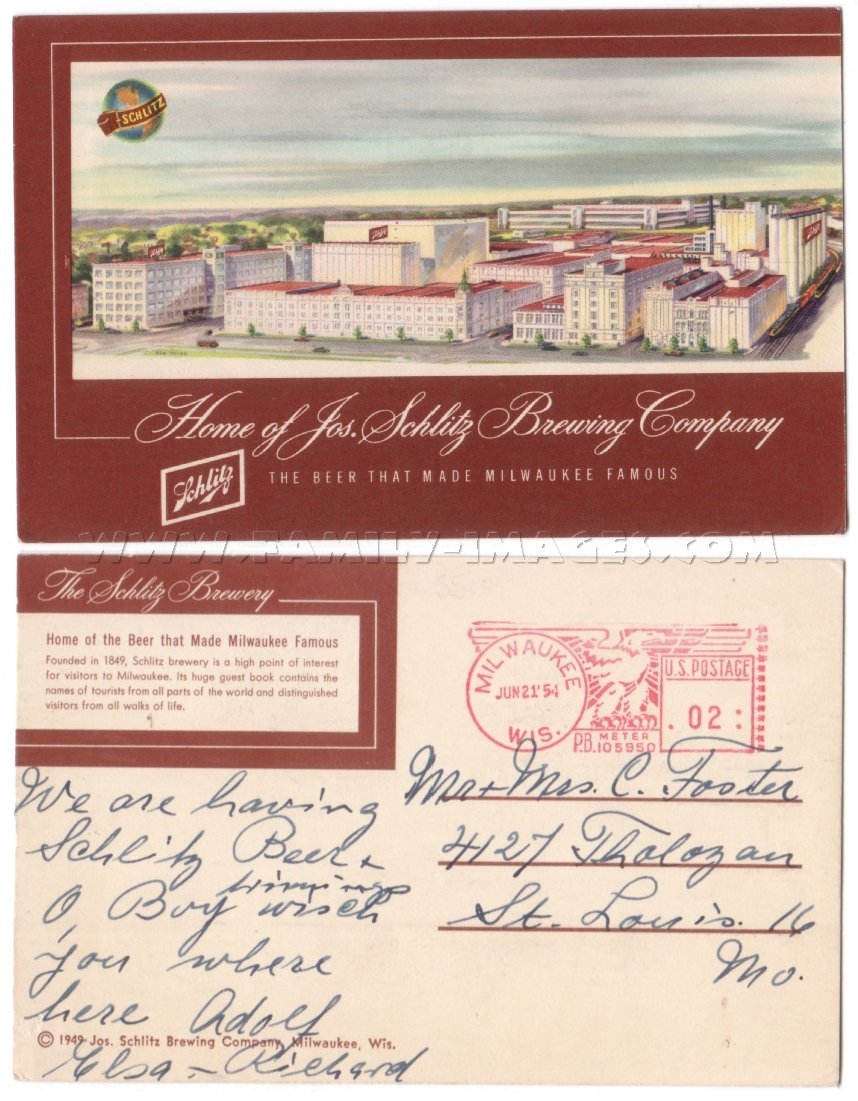 SCHLITZ
Schlitz
Schlitz
Schlitz
Home of Jos. Schlitz Brewing Company
Schlitz
THE BEER THAT MADE MILWAUKEE FAMOUS
WWW.FAMILY-IMAGES.COM
The Schlitz Brewery
Home of the Beer that Made Milwaukee Famous
Founded in 1849, Schlitz brewery is a high point of interest
for visitors to Milwaukee. Its huge guest book contains the
names of tourists from all parts of the world and distinguished
visitors from all walks of life.
MILWAUKEE
JUN 21 '54
WIS.
U.S. POSTAGE
.02:
METER
P.B. 105950
We are having
Schlitz Beer +
trimmings
O, Boy wisch
you where
here Adolf
Elsa - Richard
Mr + Mrs. C. Foster
4127 Tholozan
St. Louis. 16
Mo.
© 1949 Jos. Schlitz Brewing Company, Milwaukee, Wis.